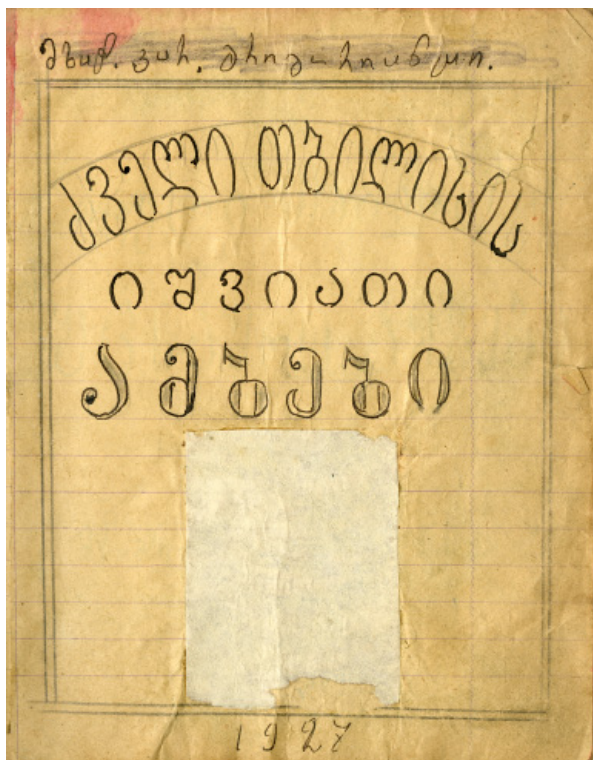 მხატ. კარ. გრიგორიანცი.
ძველი თბილისის
იშვიათი
ამბები
1927